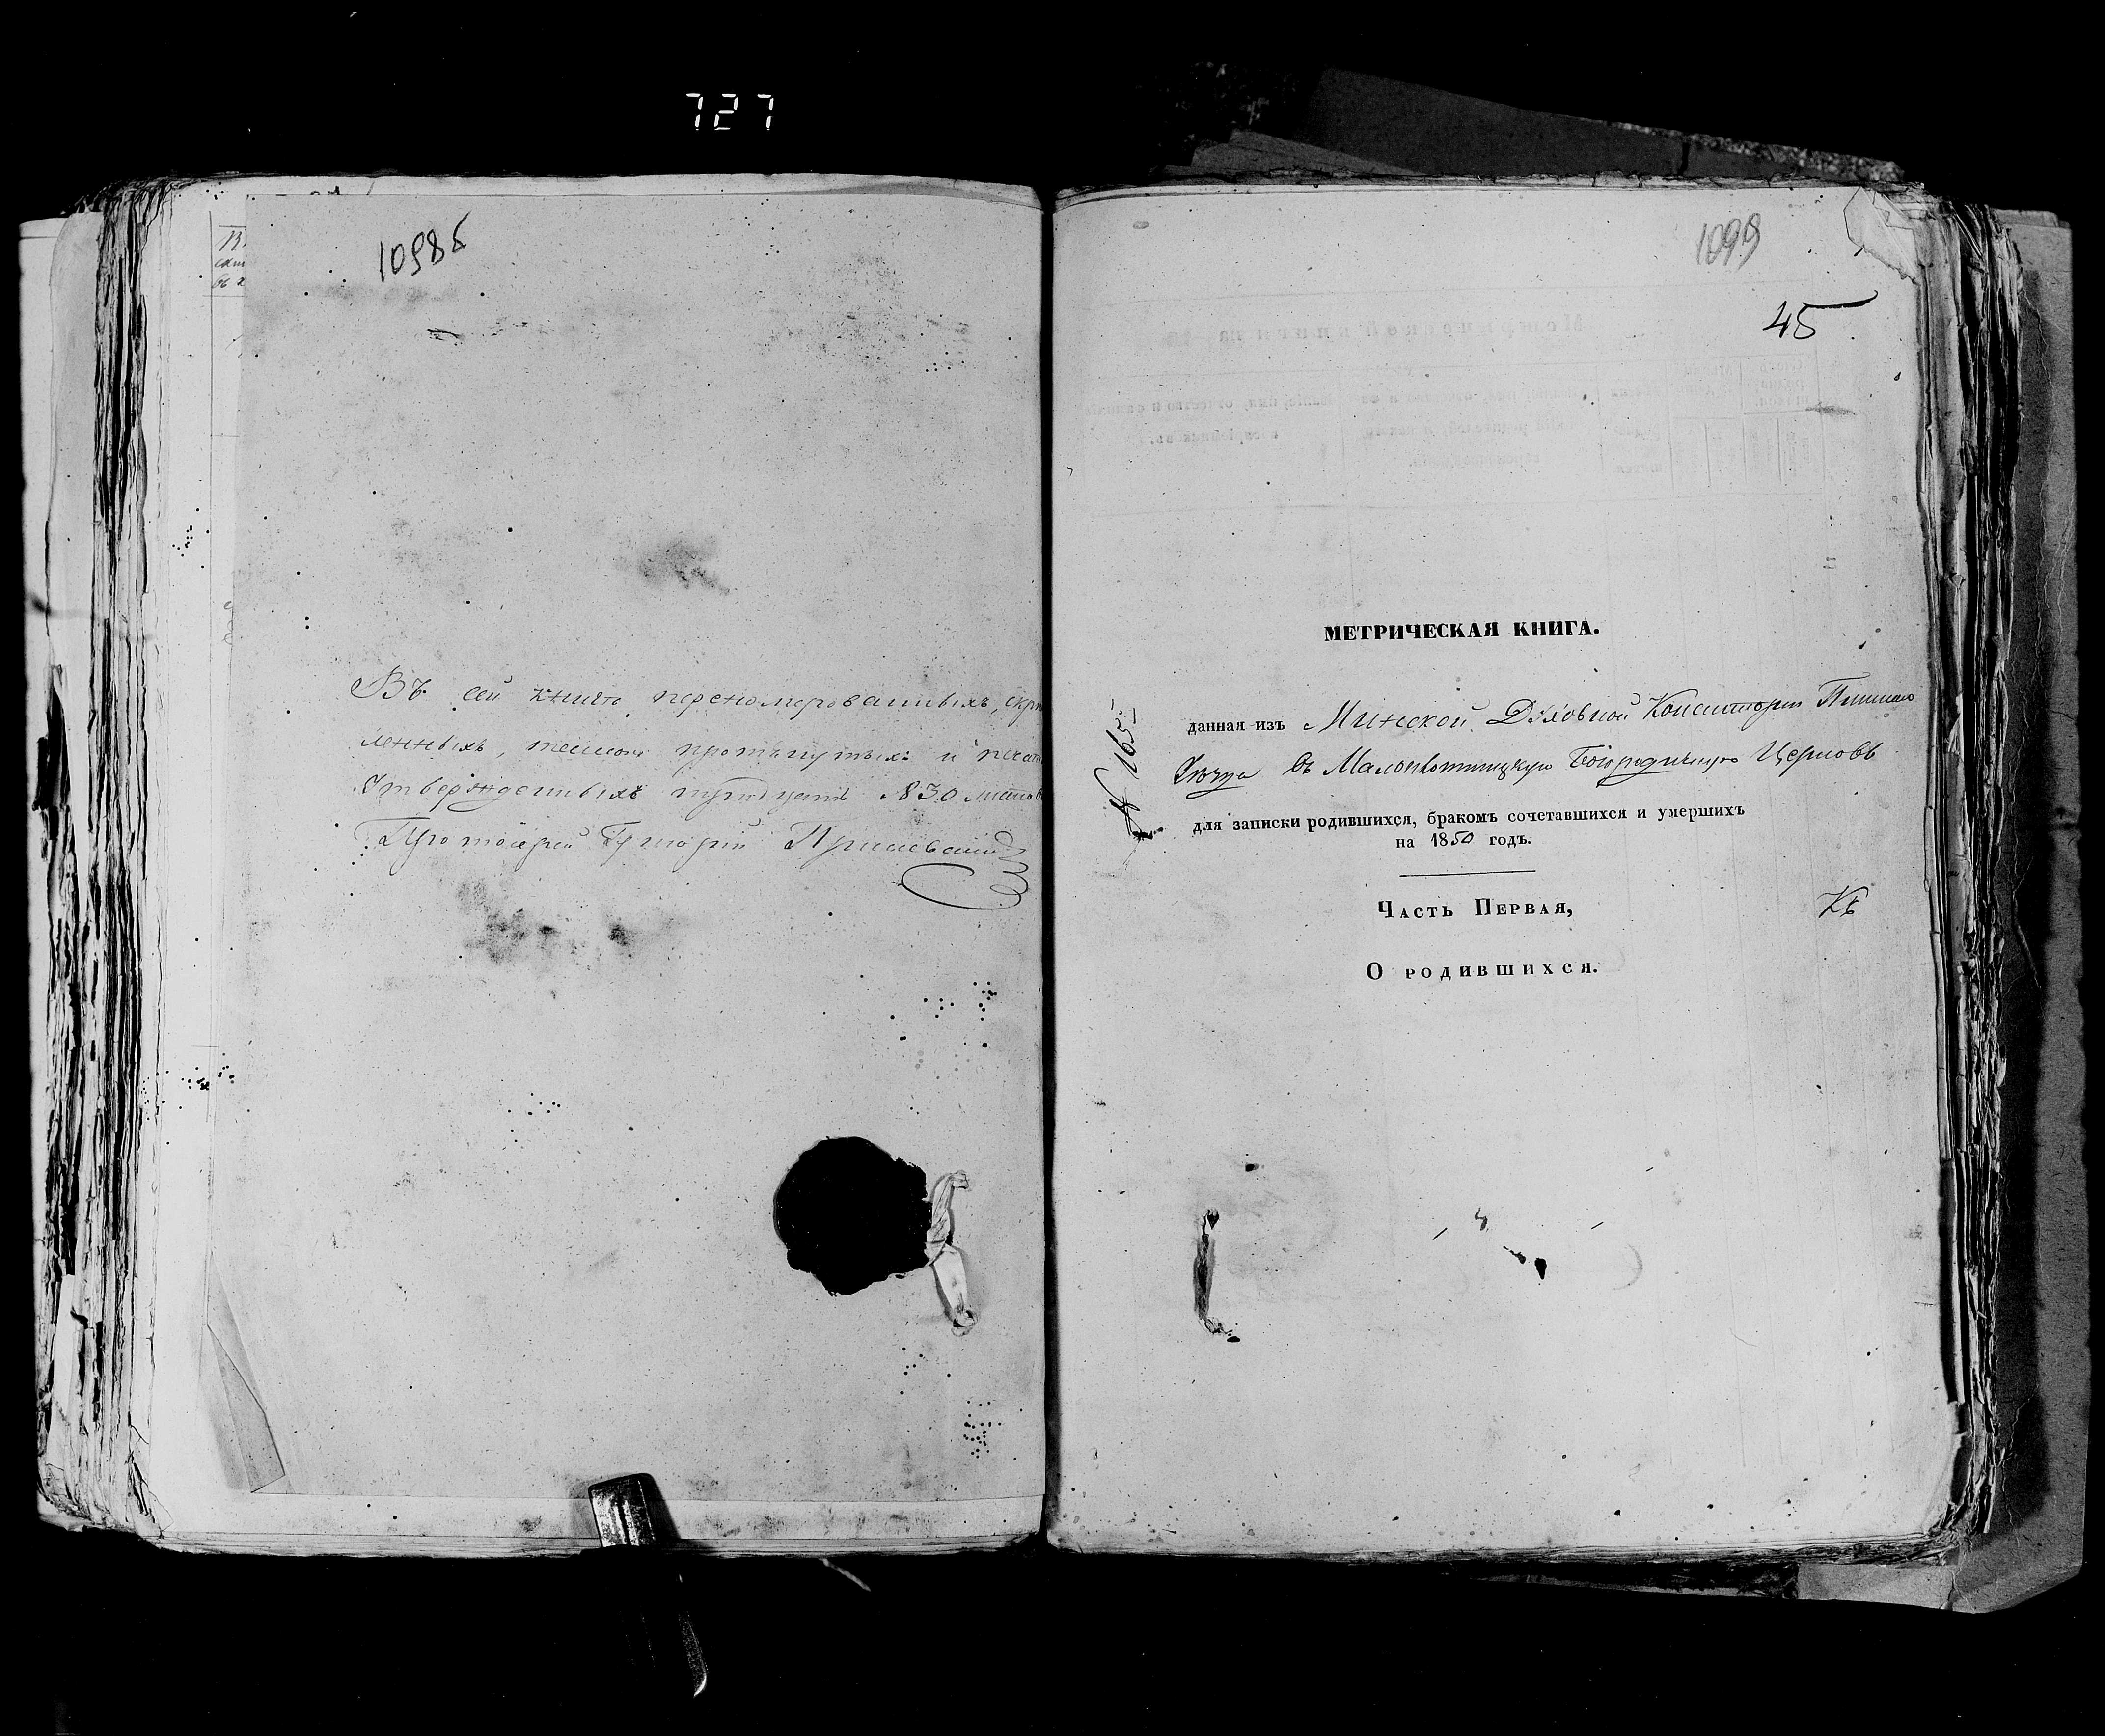 727
1098б
Въ сей книгѣ перенумерованныхъ, скрѣ
пленныхъ, тесьмою протянутыхъ и печат
Утвержденныхъ тридцать №30 листовъ
Протоіерей Григорій
1099
45
МЕТРИЧЕСКАЯ КНИГА.
данная изъ Минской Духовной Консисторіи Пинскаго
Уѣзда въ Малоплотницкую Богородичную Церковь
№ 1655
для записки родившихся, бракомъ сочетавшихся и умершихъ
на 1850 годъ.
Часть Первая,
Къ
О родившихся.